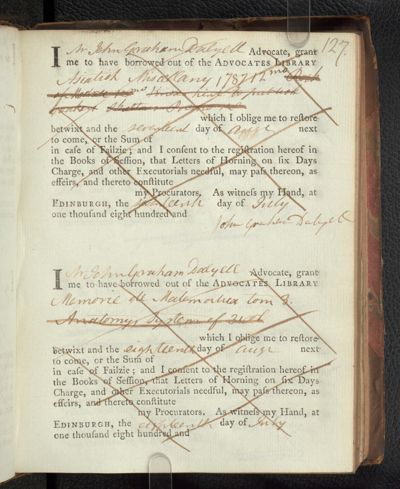 127
I Mr John Graham Dalyell Advocate, grant
me to have borrowed out of the ADVOCATES LIBRARY
Asiatick Miscellany 1787 12mo
which I oblige me to reſtore
betwixt and the seventeenth day of augt next
to come, or the Sum of
in caſe of Failzie; and I conſent to the regiſtration hereof in
the Books of Seſſion, that Letters of Horning on ſix Days
Charge, and other Executorials needful, may paſs thereon, as
effeirs, and thereto conſtitute
my Procurators. As witneſs my Hand, at
EDINBURGH, the day of July
one thouſand eight hundred and
John Graham Dalyell
I Mr John Graham Dalyell Advocate, grant
me to have borrowed out of the ADVOCATES LIBRARY
Memorie de Matematica tom 3.
Anatomy System of
which I oblige me to reſtore
betwixt and the eighteenth day of augt next
to come, or the Sum of
in caſe of Failzie; and I conſent to the regiſtration hereof in
the Books of Seſſion, that Letters of Horning on ſix Days
Charge, and other Executorials needful, may paſs thereon, as
effeirs, and thereto conſtitute
my Procurators. As witneſs my Hand, at
EDINBURGH, the eighteenth day of July
one thouſand eight hundred and